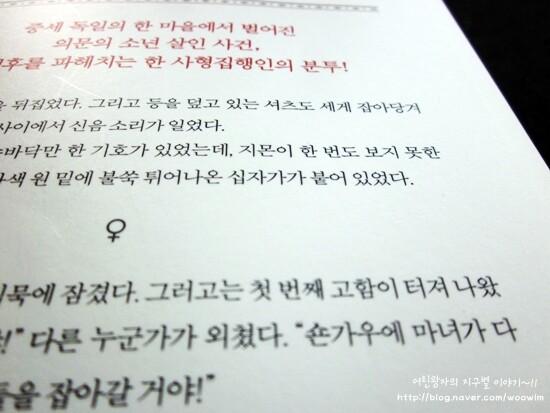 중세 독일의 한 마을에서 벌어진
의문의 소년 살인 사건,
파헤치는 한 사형집행인의 분투!
뒤집었다. 그리고 등을 덮고 있는 셔츠도 세게 잡아당겨
사이에서 신음 소리가 일었다.
한 기호가 있었는데, 지몬이 한 번도 보지 못한
원 밑에 불쑥 튀어나온 십자가가 붙어 있었다.
♀
잠겼다. 그러고는 첫 번째 고함이 터져 나왔
다른 누군가가 외쳤다. “숀가우에 마녀가 다
잡아갈 거야!”
여린왕자의 지구별 이야기~!!
http://blog.naver.com/woowim